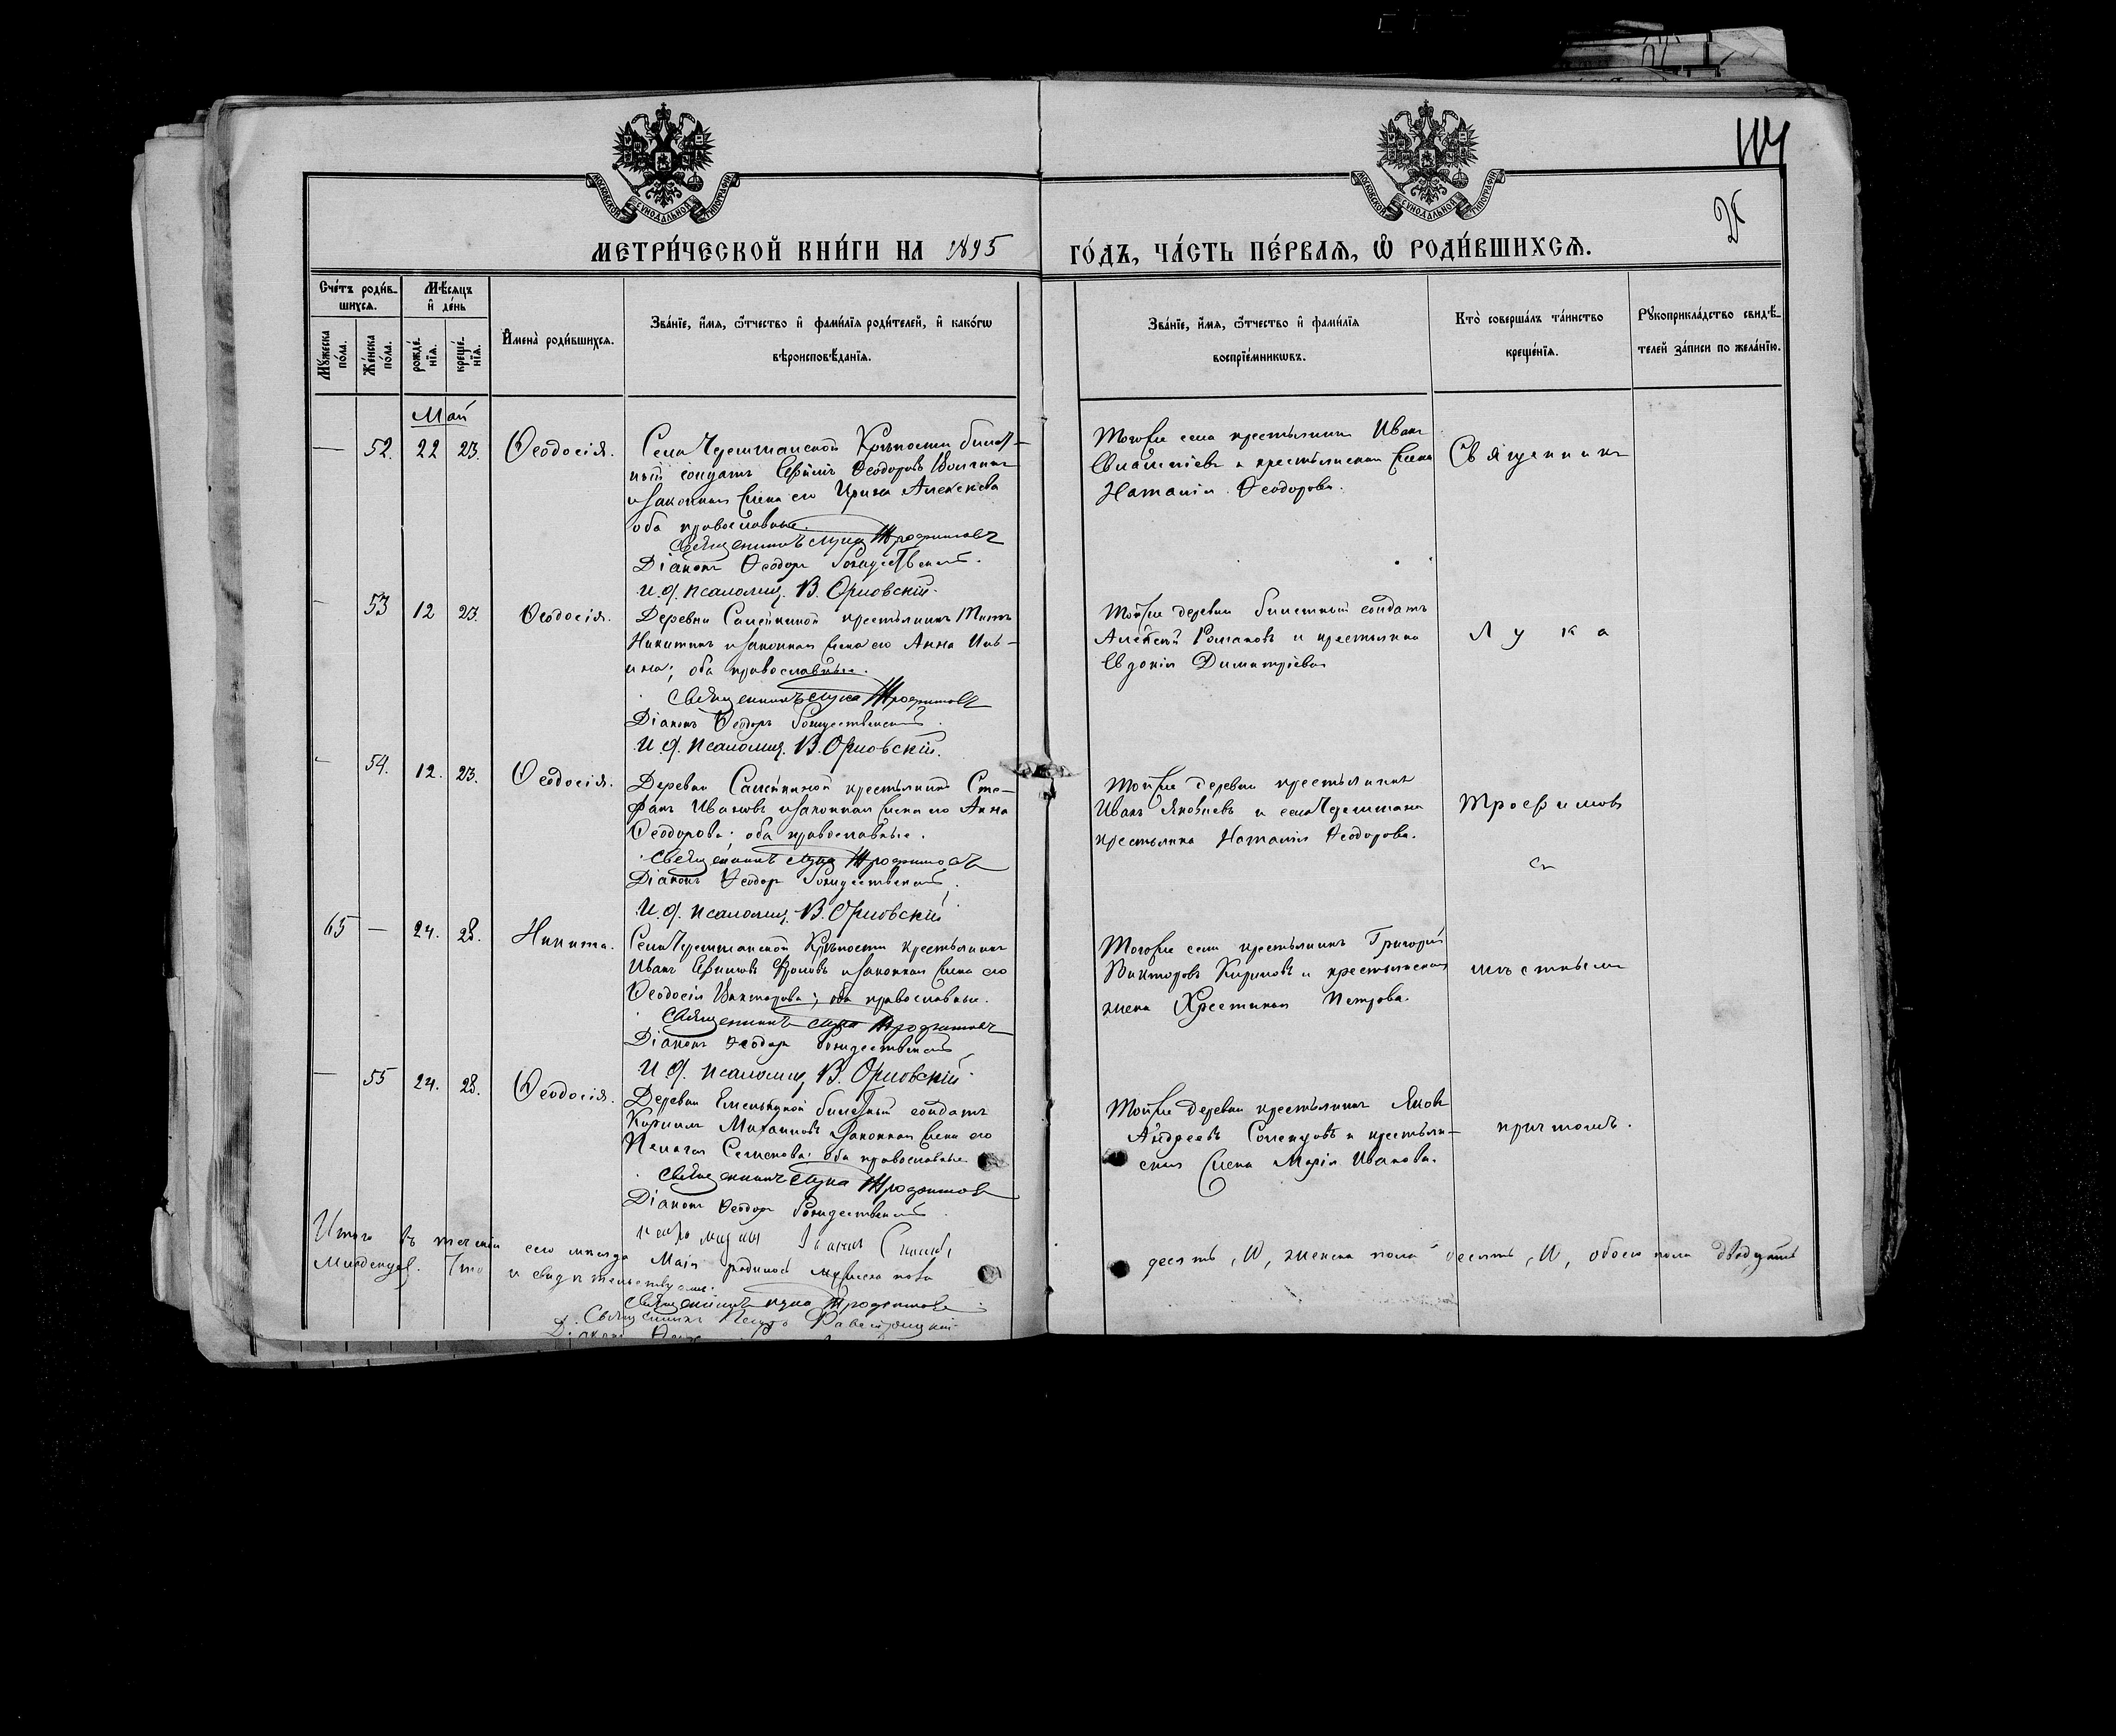 114
МОСКОВСКОЙ СѴНОДАЛЬНОЙ ТИПОГРАФІИ
МОСКОВСКОЙ СѴНОДАЛЬНОЙ ТИПОГРАФІИ
МЕТРИ́ЧЕСКОЙ КНИ́ГИ НА 1895 ГО́ДЪ, ЧА́СТЬ ПЕ́РВАѦ, Ѡ РОДИ́ВШИХСѦ.
Сче́тъ роди́в-
шихсѧ.
Мѣ́сяцъ
и҆ де́нь
Мꙋжеска по́ла.
Же́нска по́ла.
рожде́нїѧ.
креще́нїѧ.
И҆мена̀ роди́вшихсѧ.
Зва́нїе, и҆́мѧ, ѻ҆́тчество и҆ фами́лїѧ роди́телей, и҆ како́гѡ
вѣроисповѣ́данїѧ.
Зва́нїе, и҆́мѧ, ѻ҆́тчество и҆ фами́лїѧ
воспрїе́мникѡвъ.
Кто̀ соверша́лъ та́инство
креще́нїѧ.
Рꙋкоприкла́дство свидѣ́-
телей за́писи по жела́нїю.
Май
— 52. 22 23. Ѳеодосія.
Села Черемшанской Крѣпости билет-
ный солдатъ Ефимъ Ѳеодоровъ
и законная жена его Ирина Алексѣева
оба православные.
Священникъ Лука Трофимовъ
Діаконъ Ѳеодоръ Рождественскій.
И. д. псаломщ. В. Орловскій.
Тогоже села крестьянинъ Иванъ
и крестьянская жена
Наталія Ѳеодорова.
Священникъ
— 53 12 23. Ѳеодосія.
Деревни крестьянинъ Титъ
Никитинъ и законная жена его Анна Иль-
ина; оба православные.
Священникъ Лука Трофимовъ
Діаконъ Ѳеодоръ Рождественскій.
И. д. псаломщ. В. Орловскій.
Тойже деревни билетный солдатъ
Алексѣй Романовъ и крестьянка
Евдокія Димитріева
Лука
— 54. 12. 23. Ѳеодосія.
Деревни крестьянинъ Сте-
фанъ Ивановъ и законная жена его Анна
Ѳеодорова; оба православные.
Священникъ Лука Трофимовъ
Діаконъ Ѳеодоръ Рождественскій.
И. д. псаломщ. В. Орловскій
Тойже деревни крестьянинъ
Иванъ Яковлевъ и села Черемшана
крестьянка Наталія Ѳеодорова.
Трофимовъ
съ
65 — 24. 28. Никита.
Села Черемшанской Крѣпости крестьянинъ
Иванъ Ефимовъ Фроловъ и законная жена его
Ѳеодосія Викторова; оба православные.
Священникъ Лука Трофимовъ
Діаконъ Ѳеодоръ Рождественскій
И. д. псаломщ. В. Орловскій.
Тогоже села крестьянинъ Григорій
Викторовъ Кириловъ и крестьянская
жена Хрестина Петрова.
мѣстнымъ
— 55 24. 28. Ѳеодосія.
Деревни Емелькиной билетный солдатъ
Кириллъ Михайловъ и законная жена его
Пелагія Семенова; оба православные
Священникъ Лука Трофимовъ
Діаконъ Ѳеодоръ Рождественскій.
Тойже деревни крестьянинъ Яковъ
Андреевъ и крестьян-
ская жена Марія Иванова.
причтомъ.
Итого въ теченіи сего мѣсяца Маія родилось мужеска пола десять, 10, женска пола десять, 10, обоего пола двадцать
Младенцев. и свидѣтельствуемъ:
Священникъ Лука Трофимовъ
Священникъ Петръ
Діаконъ Ѳеод